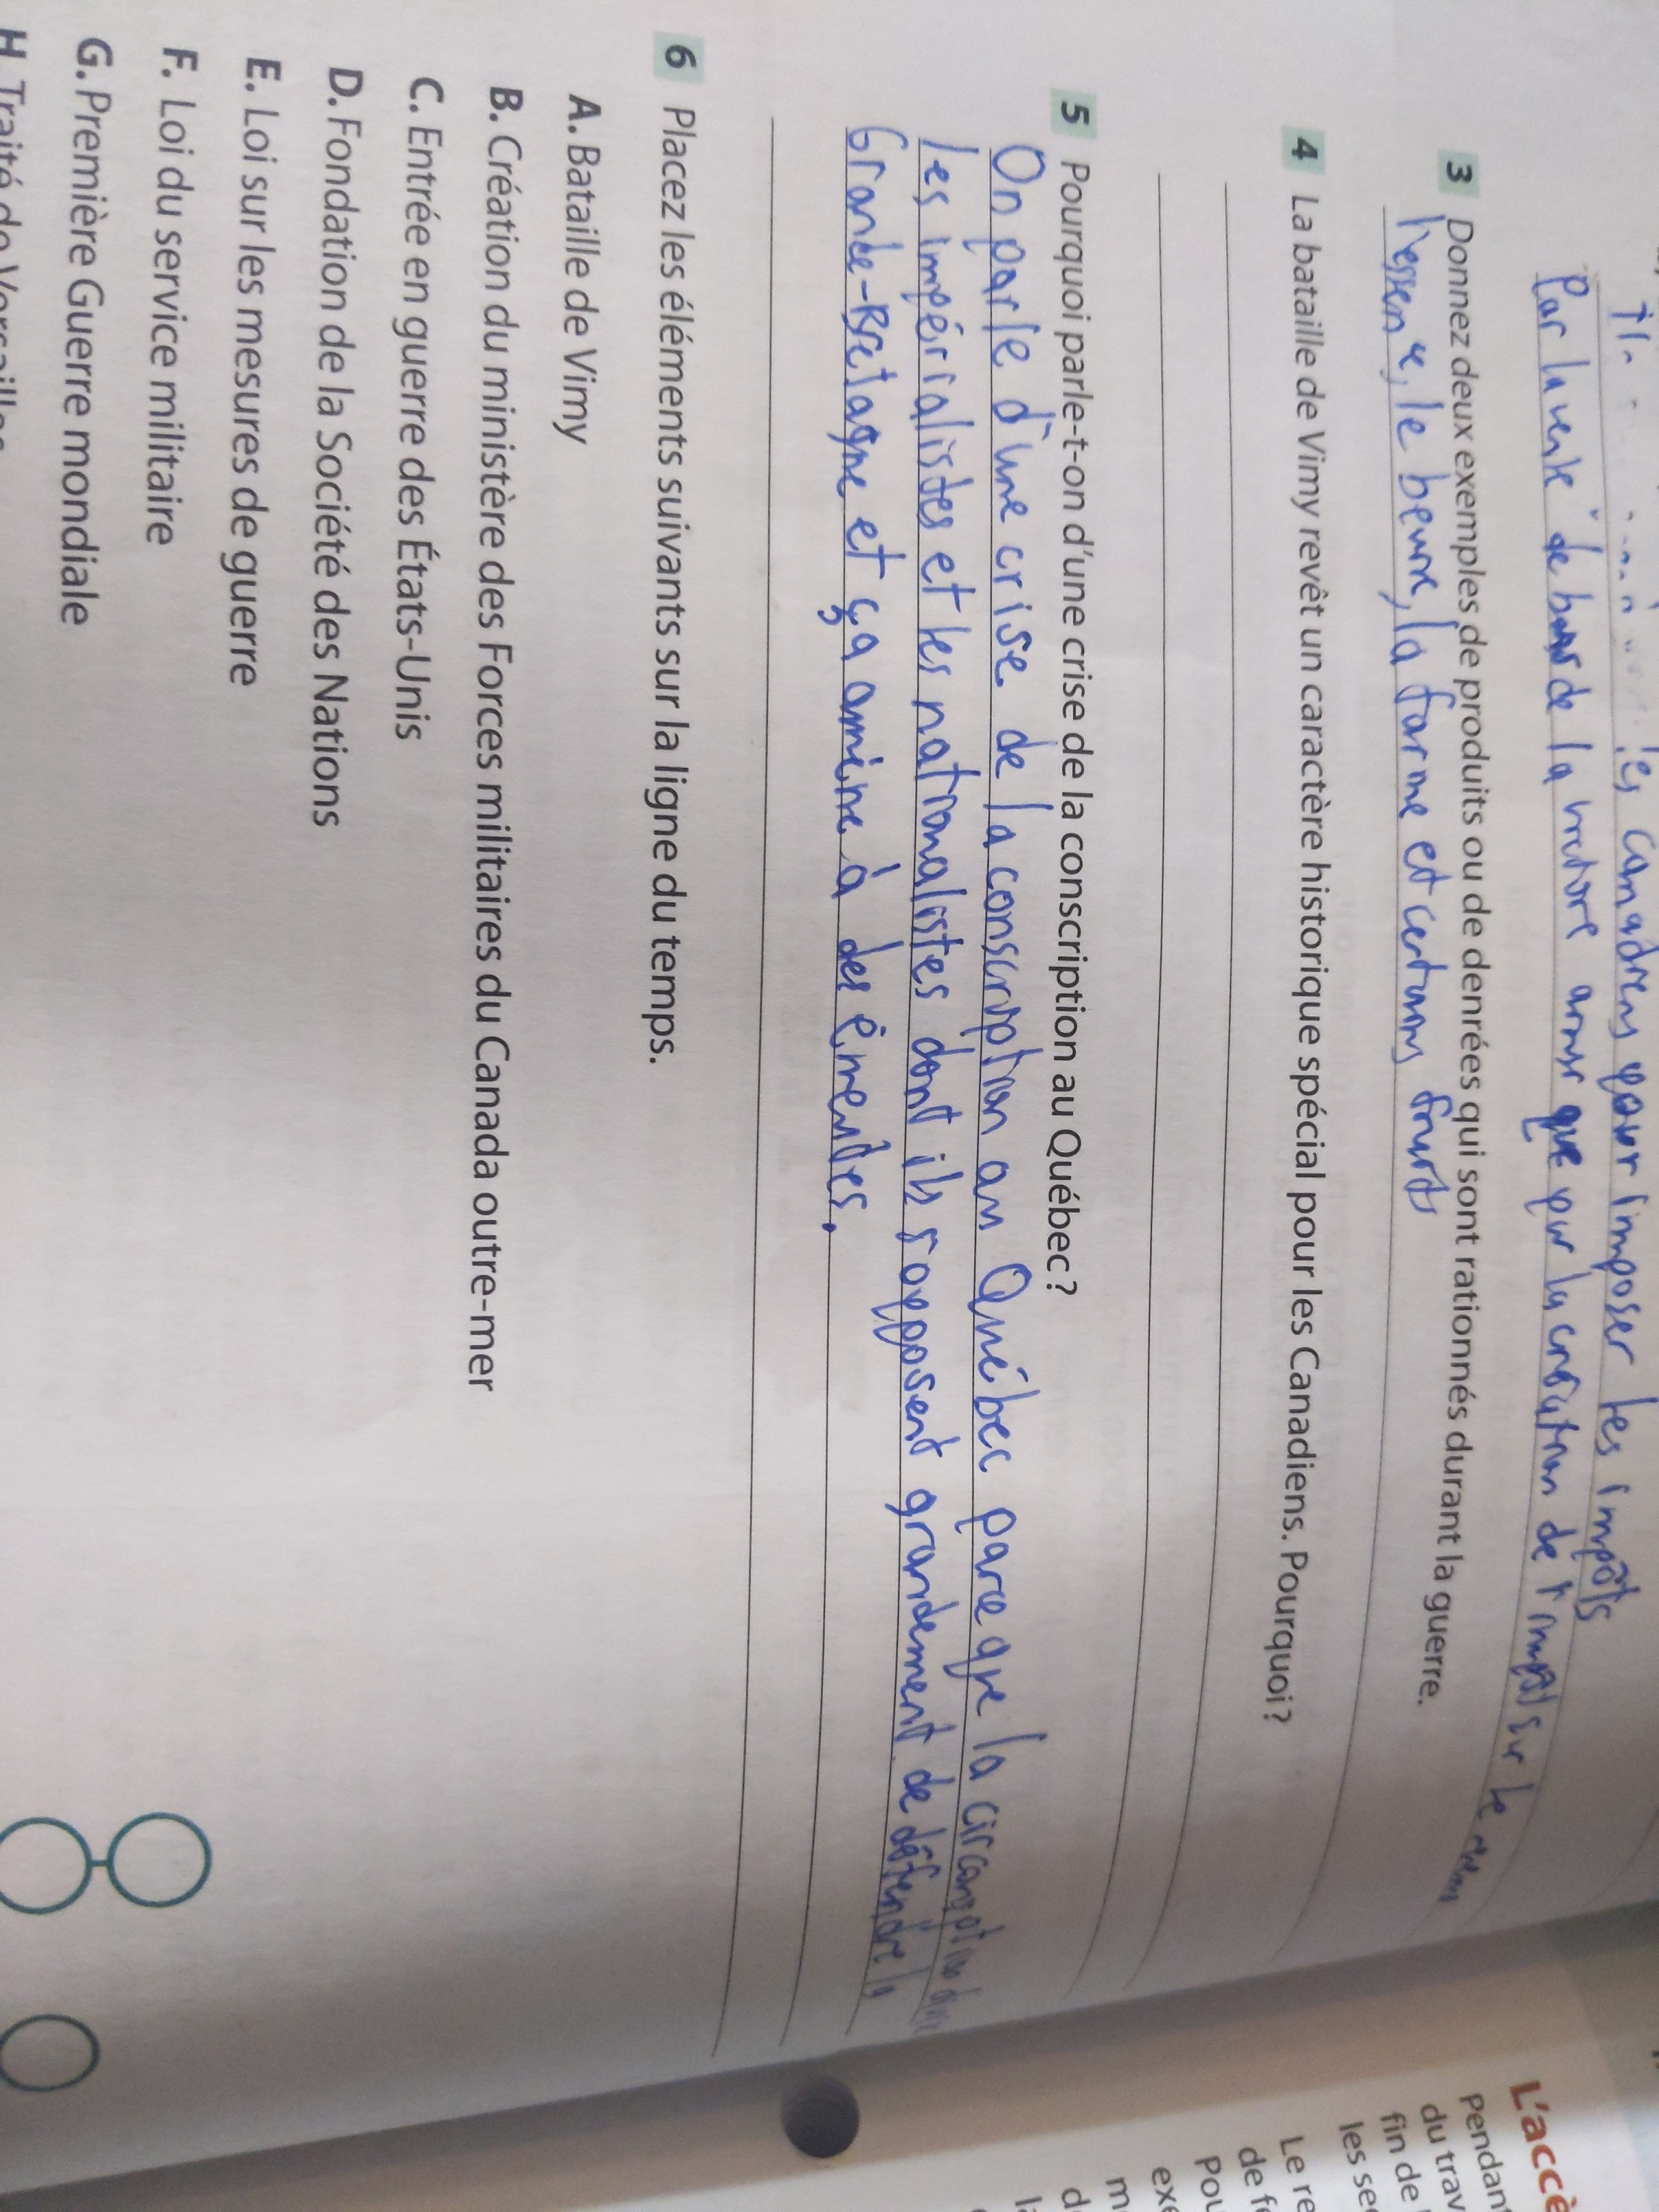 les canadiens pour imposer les impôts
Par la vente de bons de la victoire ainsi que par la création de l'impôt sur le
3 Donnez deux exemples de produits ou de denrées qui sont rationnés durant la guerre.
l'essence, le beurre, la farine et certains fruits
4 La bataille de Vimy revêt un caractère historique spécial pour les Canadiens. Pourquoi?
5 Pourquoi parle-t-on d'une crise de la conscription au Québec?
On parle d'une crise de la conscription au Québec parce que la
les impérialistes et les nationalistes dont ils s'opposent grandement de défendre la
Grande-Bretagne et ça amène à des émeutes.
6 Placez les éléments suivants sur la ligne du temps.
A. Bataille de Vimy
B. Création du ministère des Forces militaires du Canada outre-mer
C. Entrée en guerre des États-Unis
D. Fondation de la Société des Nations
E. Loi sur les mesures de guerre
F. Loi du service militaire
G. Première Guerre mondiale
H. Traité de Versailles
L'accè
Pendant
du trav
fin de
les se
Le re
de f
Pou
exe
m
d